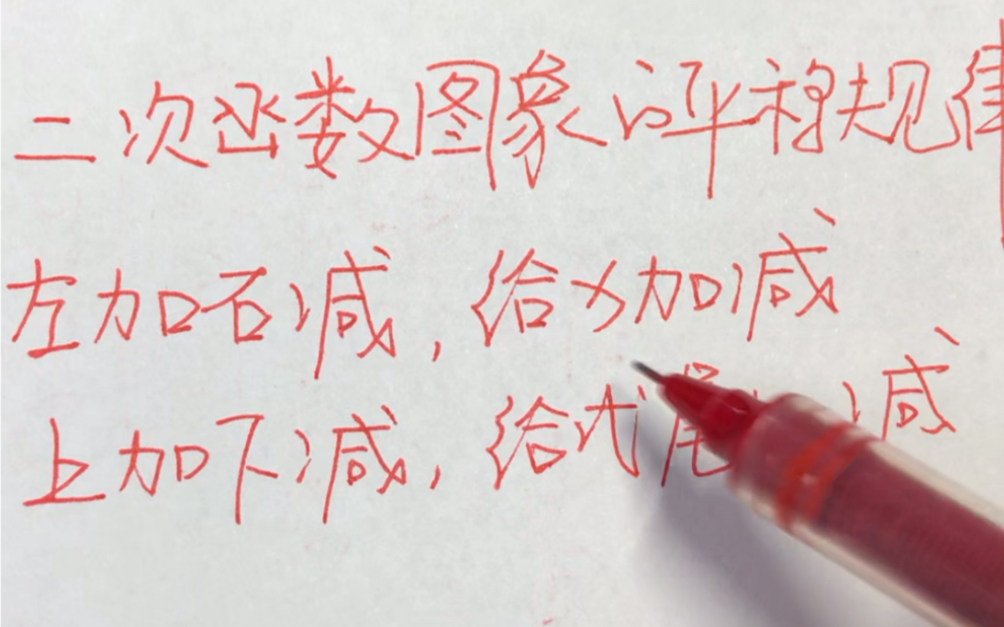 二次函数图象的平移规律
左加右减,给x加减
上加下减,给式尾 减